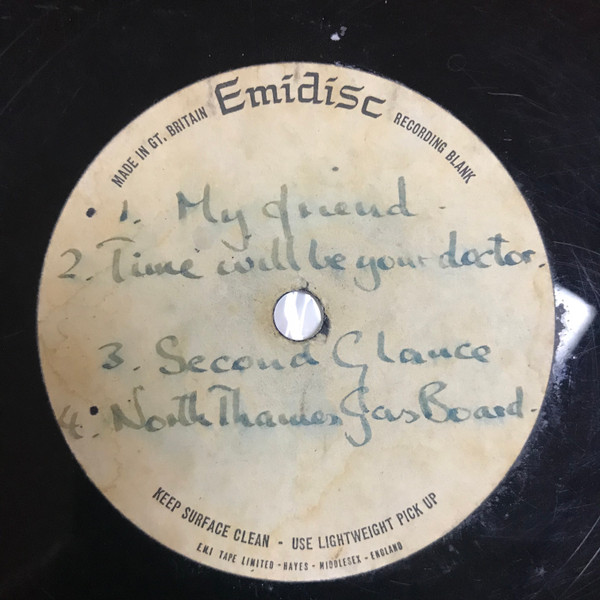 Emidisc
MADE IN GT. BRITAIN
RECORDING BLANK
1. My friend.
2. Time will be your doctor.
3. Second Glance
4. North Thames Gas Board.
KEEP SURFACE CLEAN - USE LIGHTWEIGHT PICK UP
E.M.I TAPE LIMITED - HAYES - MIDDLESEX - ENGLAND